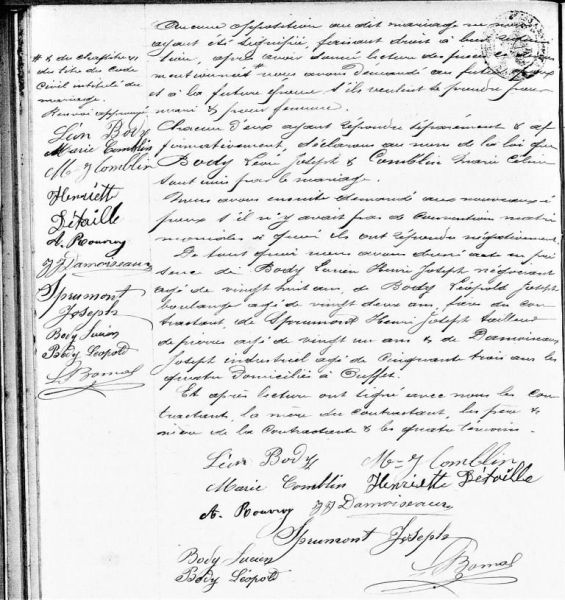 Aucune opposition au dit mariage ne nous
ayant été signifiée, faisant droit à leur réquisi
tion, après avoir donné lecture des pièces
mentionnées nous avons demandé au futur époux
et à la future épouse s'ils veulent se prendre pour
mari & pour femme.
Chacun d'eux ayant répondu séparément & af
firmativement, déclarons au nom de la loi que
Body Léon Joseph & Comblin Marie
sont unis par le mariage.
Nous avons ensuite demandé aux nouveaux é
poux s'il n'y avait pas de convention matri
moniales à quoi ils ont répondu négativement.
De tout quoi nous avons dressé acte en pré
sence de Body Lucien Henri Joseph négociant
agé de vingt huit ans, de Body Léopold Joseph
boulanger agé de vingt deux ans, frères du con
tractant, de Sprumont Henri Joseph tailleur
de pierres agé de vingt un ans & de Damoiseaux
Joseph industriel agé de Cinquante trois ans les
quatre domiciliés à Ouffet.
Et après lecture ont signé avec nous les con
tractant, la mère du contractant, les père &
mère de la Contractante & les quatre témoins.
# & du chapitre VI
du titre du Code
Civil intitulé du
mariage.
Renvoi approuvé
Léon Body
Marie Comblin
M J Comblin
Henriette
Détaille
A. Rouvroy
JJ Damoiseaux
Sprumont
Joseph
Body Lucien
Body Léopold
L Bomal
Léon Body M J Comblin
Marie Comblin Henriette Détaille
A. Rouvroy JJ Damoiseaux
Sprumont Joseph
Body Lucien
Body Léopold L Bomal